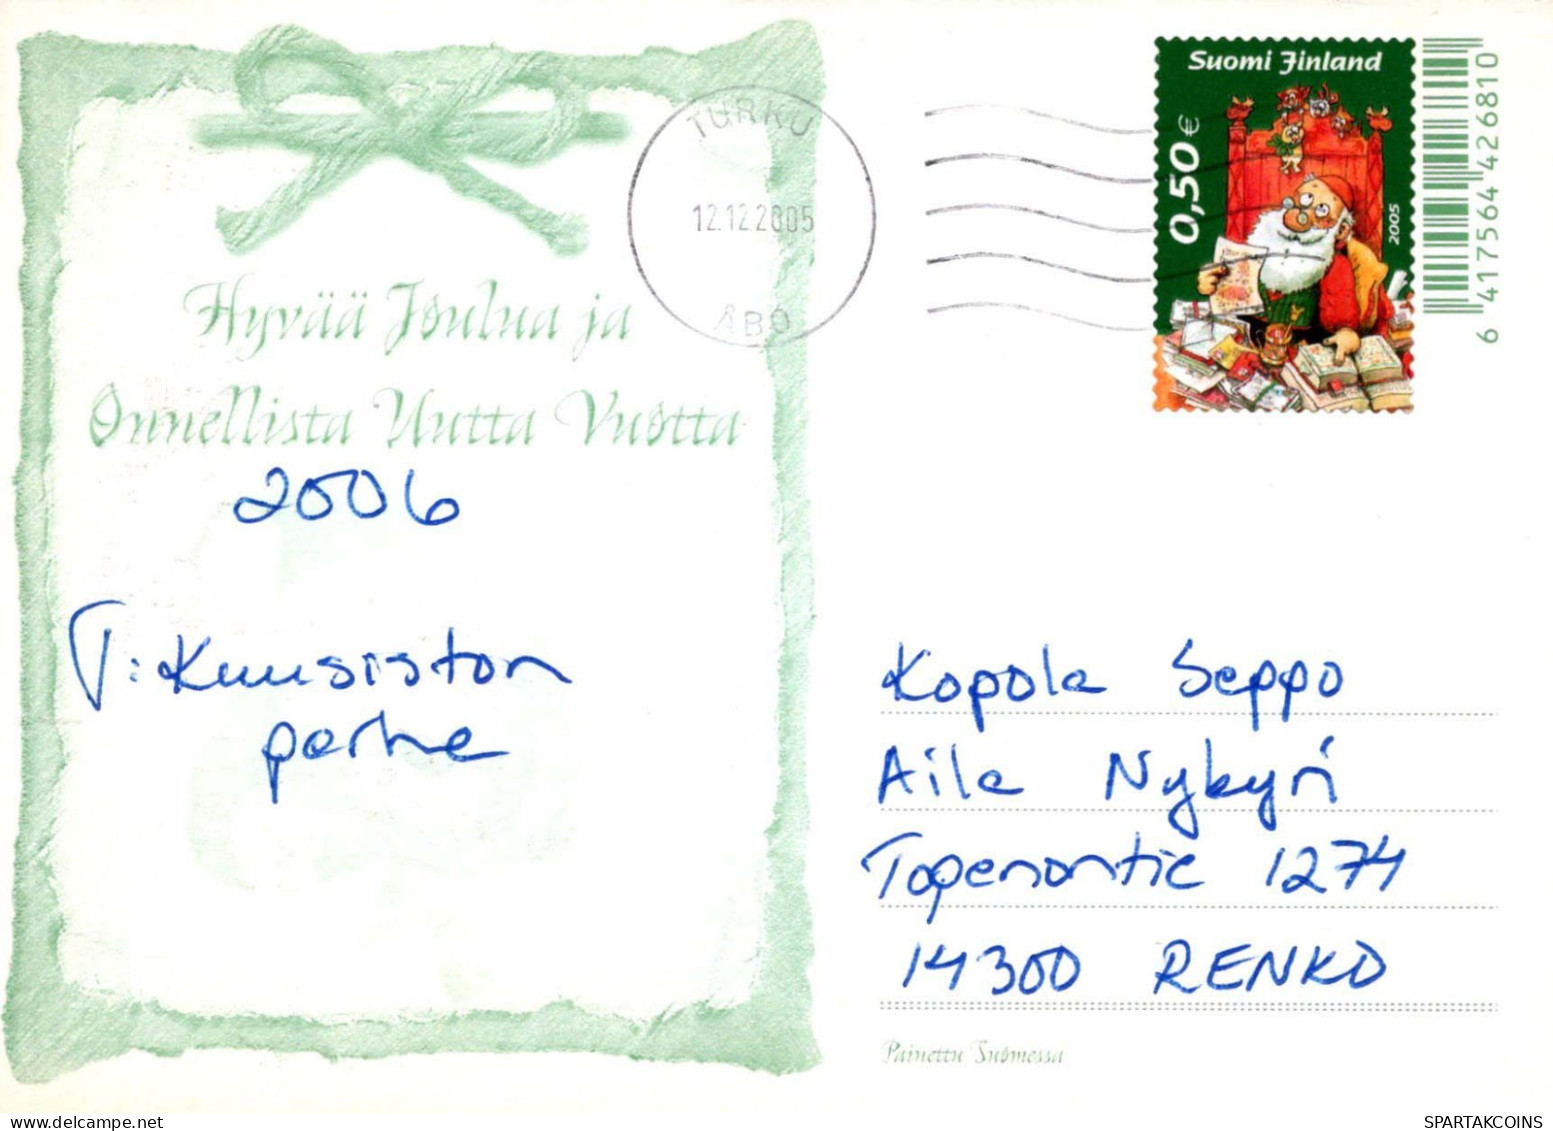 Suomi Finland
0,50 €
2005
6 417564 426810
TURKU
12.12.2005
ÅBO
Hyvää Joulua ja
Onnellista Uutta Vuotta
2006
T: Kuusiston
perhe
Kopola Seppo
Aila Nykyri
Topenontie 1274
14300 RENKO
Painettu Suomessa
delcampe.net
SPARTAKCOINS